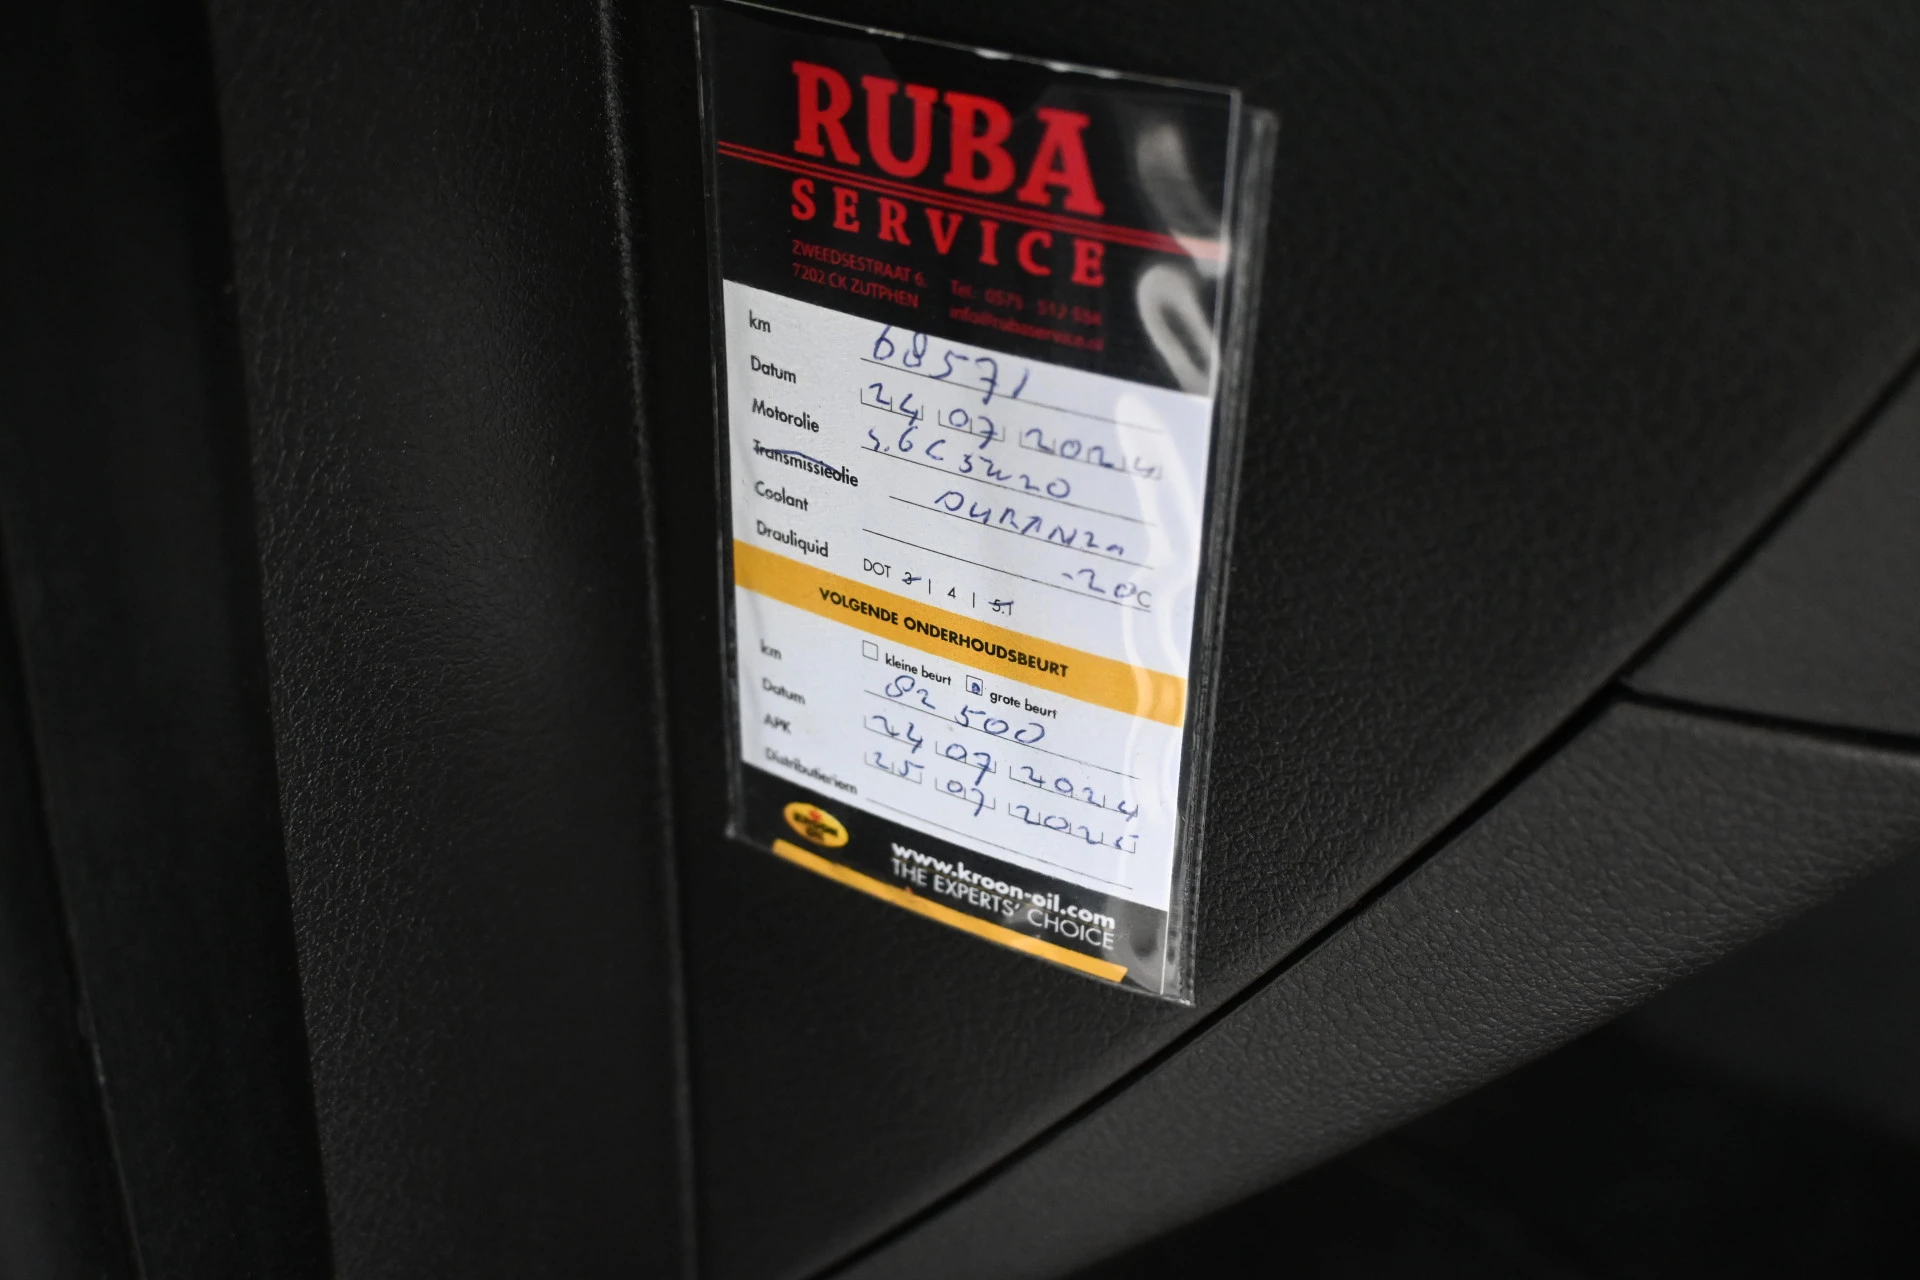 RUBA
SERVICE
ZWEEDSESTRAAT 6.
7202 CK ZUTPHEN
Tel. 0575 512 554
info@rubaservice.nl
km 68571
Datum 24 07 2024
Motorolie 5.6 C 5W20
Transmissieolie DURANZA
Coolant -20C
Drauliquid DOT 3 | 4 | 5.1
VOLGENDE ONDERHOUDSBEURT
kleine beurt grote beurt
km 82 500
Datum 24 07 2024
APK 25 07 2025
Distributieriem
KROON OIL
www.kroon-oil.com
THE EXPERTS' CHOICE